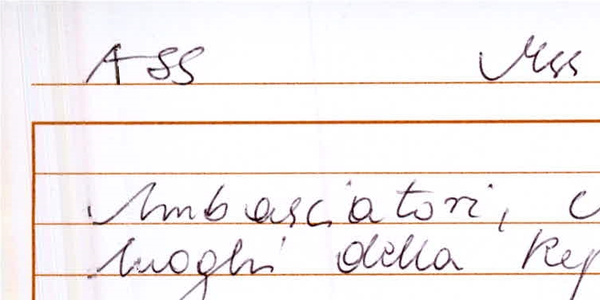 ASS Mss
Ambasciatori,
luoghi della Rep